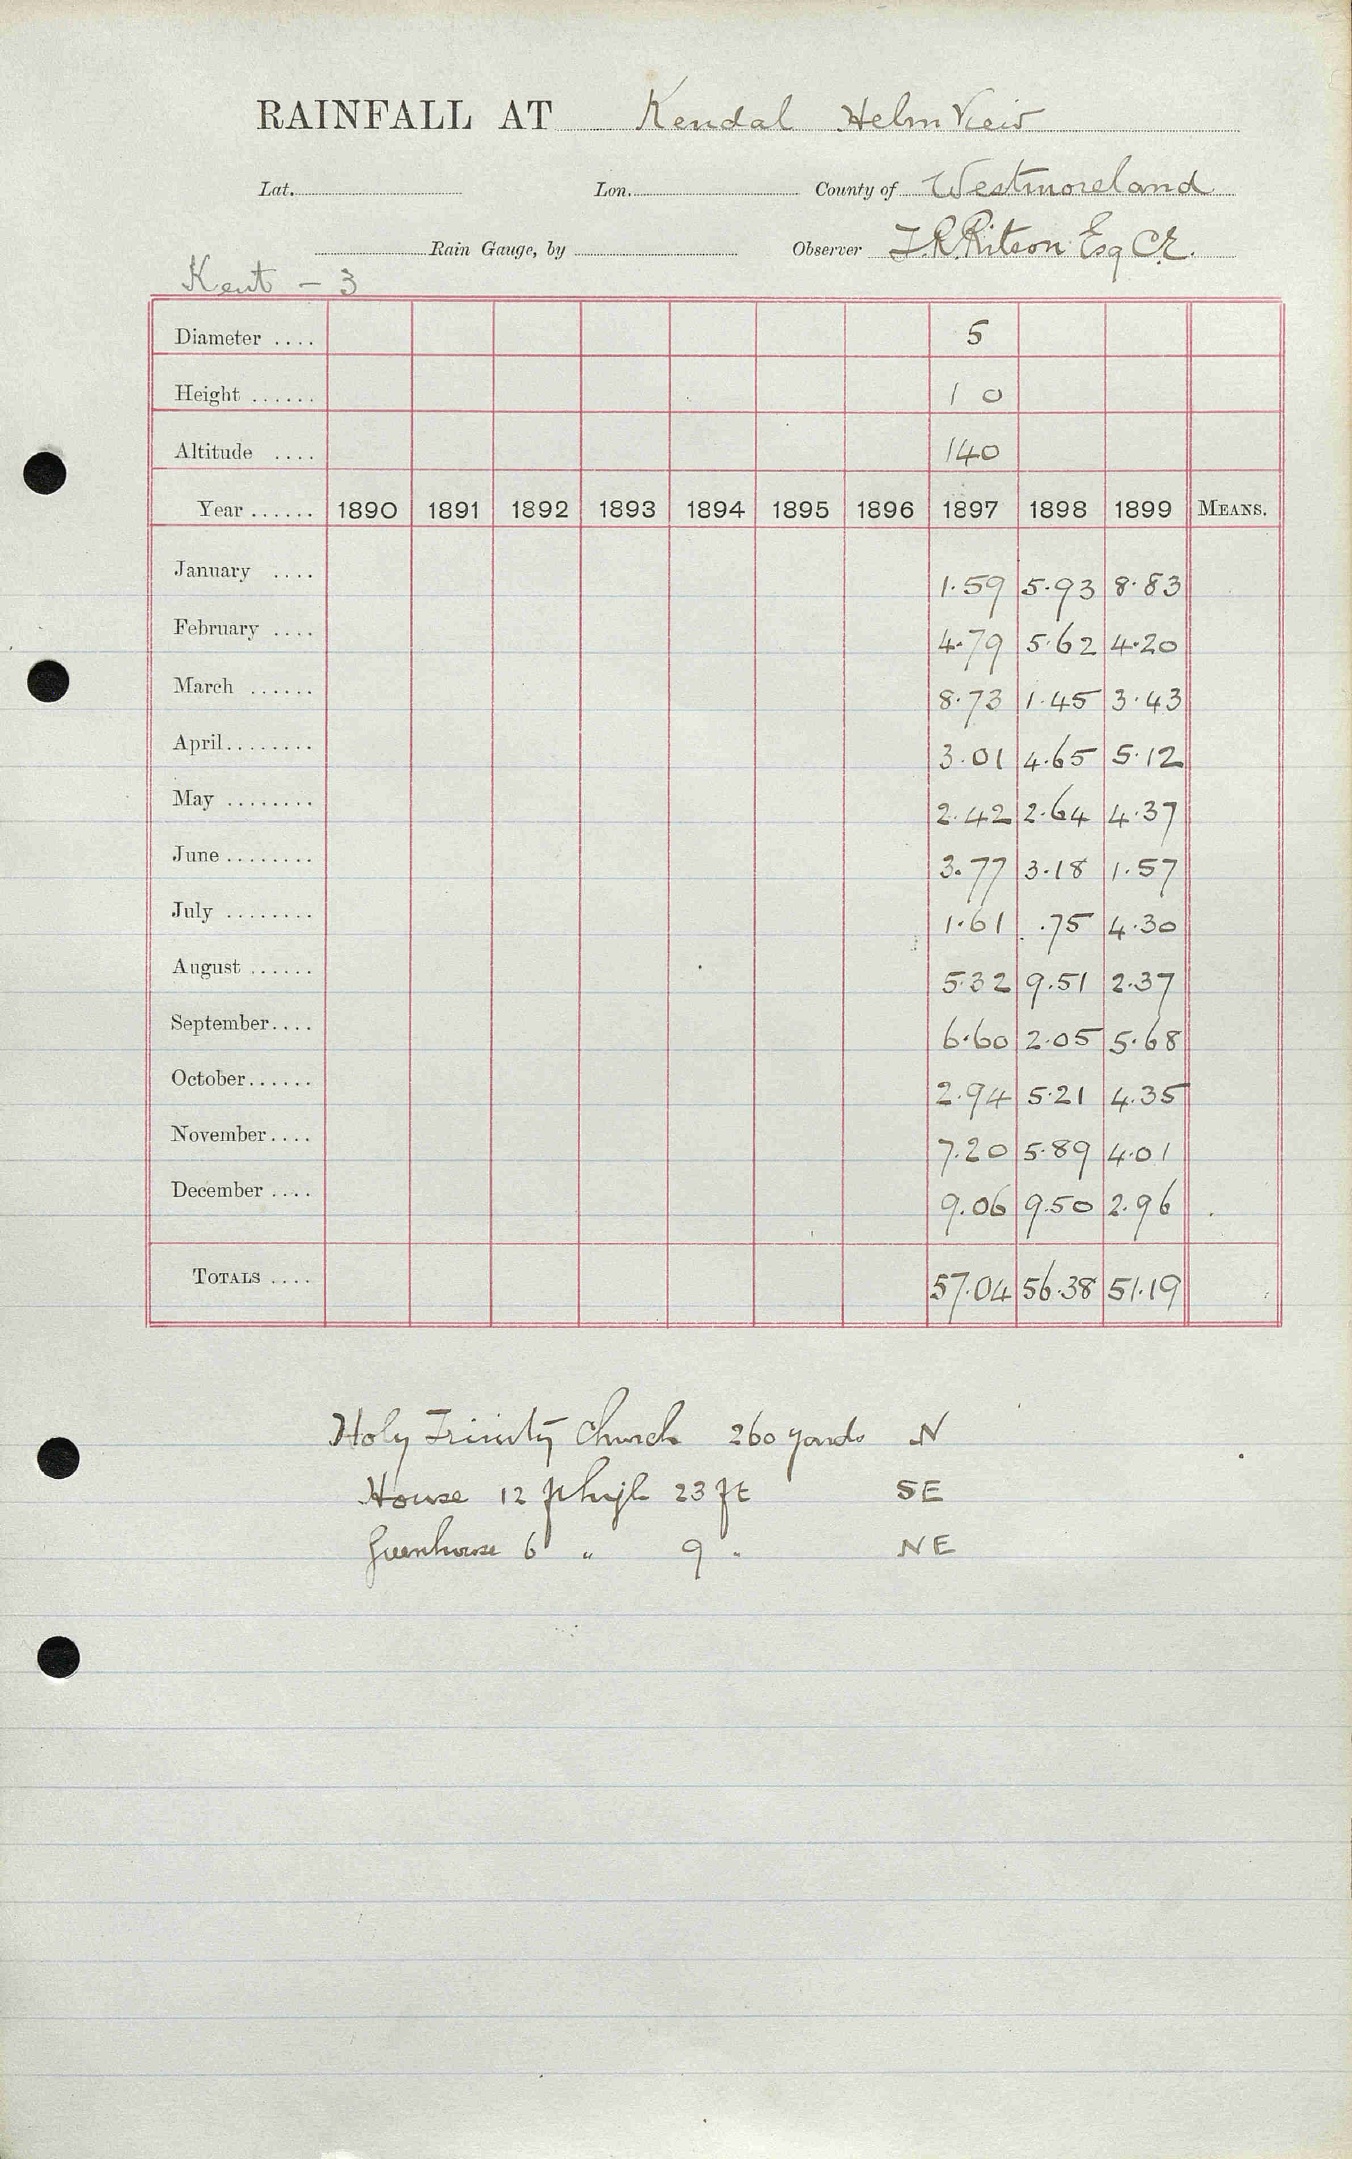 RAINFALL AT Kendal Helm View
Lat. Lon. County of Westmoreland
Rain Gauge, by Observer J.R. Ritson Esq C.E.
Kent - 3
Diameter .... 5
Height ...... 1 0
Altitude .... 140
Year ...... 1890 1891 1892 1893 1894 1895 1896 1897 1898 1899 MEANS.
January .... 1.59 5.93 8.83
February .... 4.79 5.62 4.20
March ...... 8.73 1.45 3.43
April........ 3.01 4.65 5.12
May ........ 2.42 2.64 4.37
June ........ 3.77 3.18 1.57
July ........ 1.61 .75 4.30
August ...... 5.32 9.51 2.37
September.... 6.60 2.05 5.68
October...... 2.94 5.21 4.35
November.... 7.20 5.89 4.01
December .... 9.06 9.50 2.96
TOTALS .... 57.04 56.38 51.19
Holy Trinity Church 260 yards N
House 12 ft high 23 ft SE
Greenhouse 6 " 9 " NE